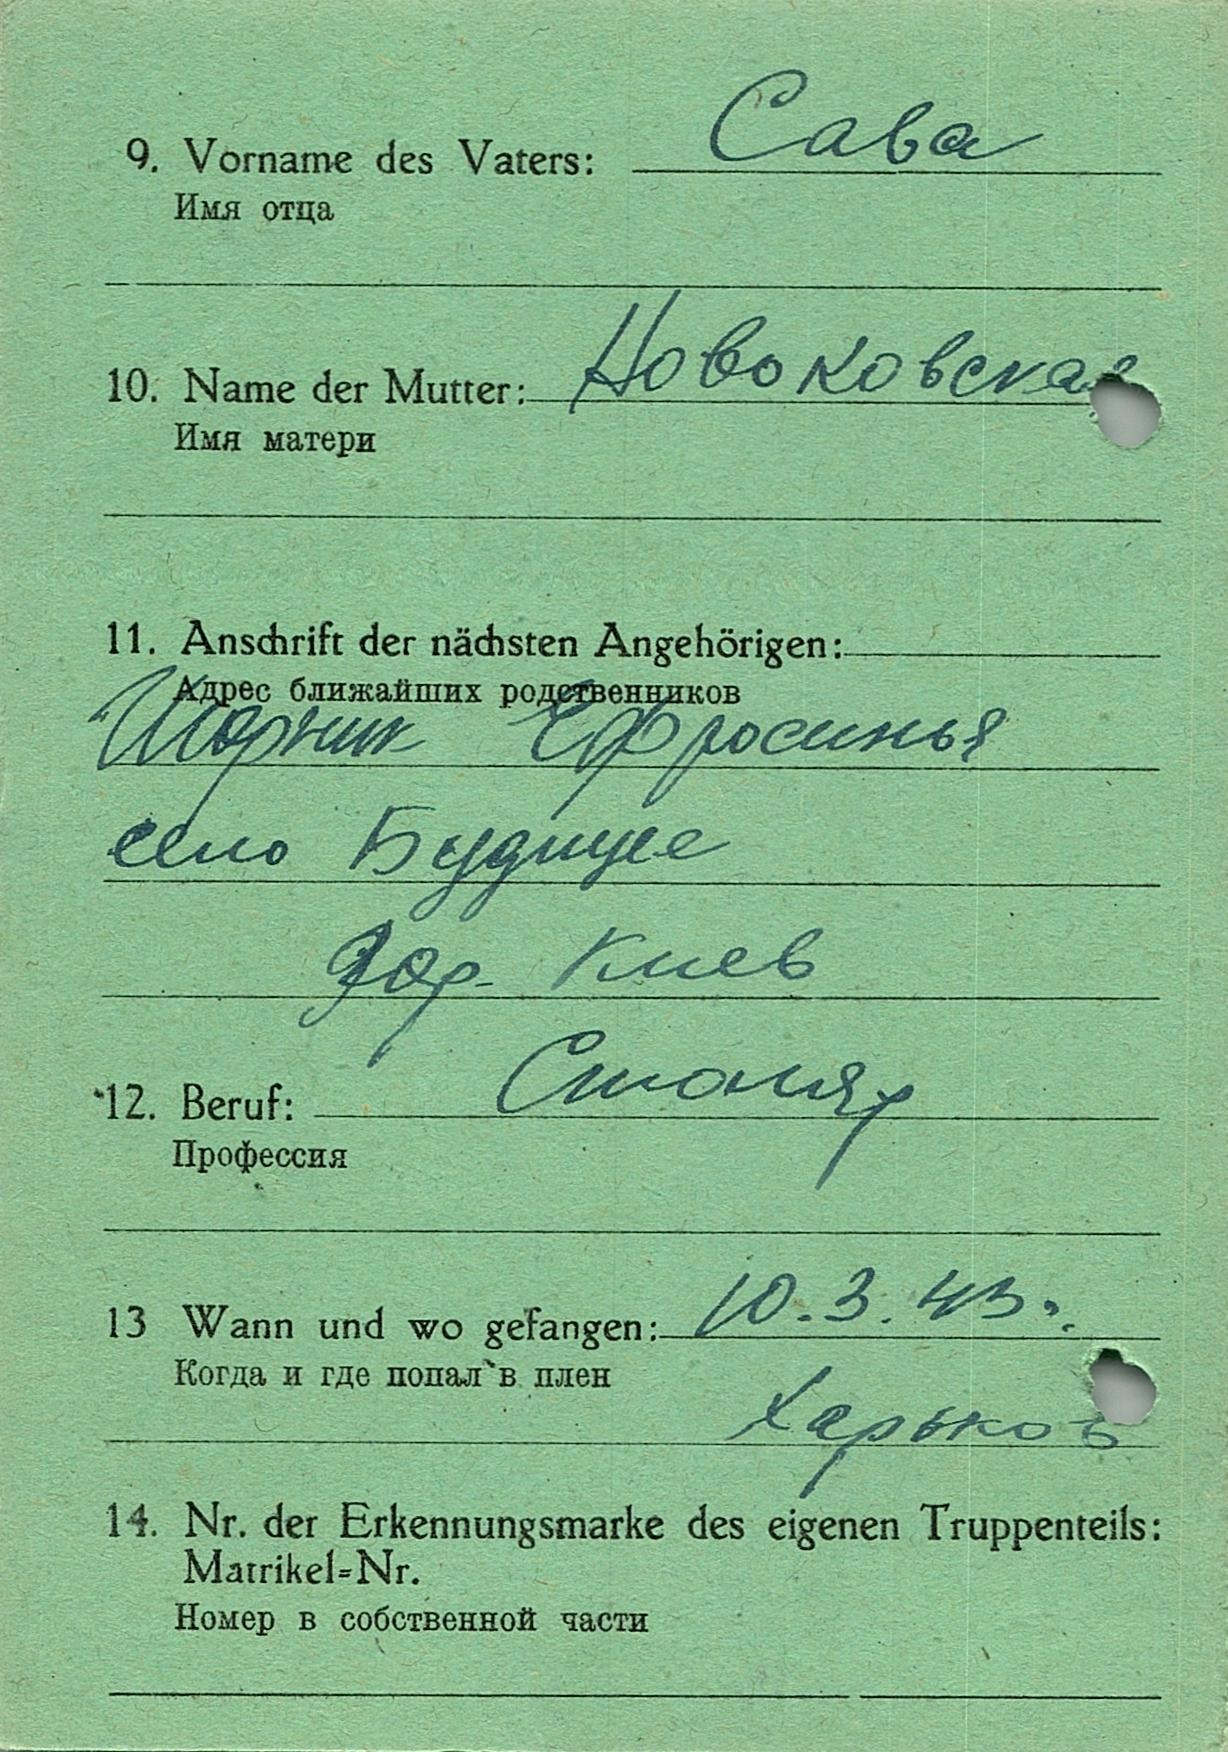 9. Vorname des Vaters: Сава
Имя отца
10. Name der Mutter: Новоковская
Имя матери
11. Anschrift der nächsten Angehörigen:
Адрес ближайших родственников
Ефросинья
село Будище
гор. Киев
12. Beruf: Столяр
Профессия
13 Wann und wo gefangen: 10.3.43 г.
Когда и где попал в плен
Харьков
14. Nr. der Erkennungsmarke des eigenen Truppenteils:
Matrikel=Nr.
Номер в собственной части